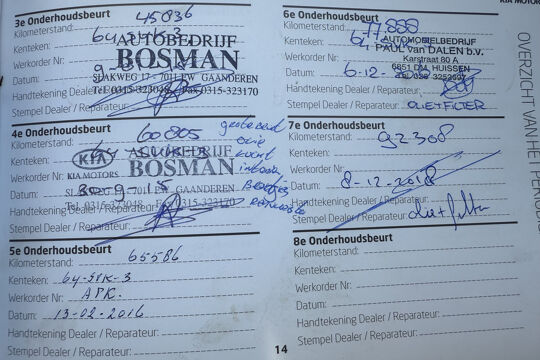 KIA MOTORS
OVERZICHT VAN HET PERIODIE
3e Onderhoudsbeurt
Kilometerstand: 45836
Kenteken: 64-SVK-3
AUTOBEDRIJF
Werkorder Nr:
BOSMAN
Datum:
SLAKWEG 17 - 7011 EW GAANDEREN
Handtekening Dealer / Reparateur:
Tel. 0315-323048 Fax 0315-323170
Stempel Dealer / Reparateur:
4e Onderhoudsbeurt
Kilometerstand: 60805
Kenteken:
KIA
AUTOBEDRIJF
Werkorder Nr:
KIA MOTORS
BOSMAN
Datum: 30-9-15
GAANDEREN
Handtekening Dealer / Reparateur:
Tel. 0315-323048 Fax 0315-323170
Stempel Dealer / Reparateur:
5e Onderhoudsbeurt
Kilometerstand: 65586
Kenteken: 64-SVK-3
Werkorder Nr: APK.
Datum: 13-02-2016
Handtekening Dealer / Reparateur:
Stempel Dealer / Reparateur:
6e Onderhoudsbeurt
Kilometerstand: 77.888
Kenteken:
AUTOMOBIELBEDRIJF
PAUL van DALEN b.v.
Werkorder Nr:
Karstraat 80 A
6851 DM HUISSEN
Datum: 6-12-
Handtekening Dealer / Reparateur:
Stempel Dealer / Reparateur: OLIE+FILTER
7e Onderhoudsbeurt
Kilometerstand: 92308
Kenteken:
Werkorder Nr:
Datum: 8-12-2018
Handtekening Dealer / Reparateur:
Stempel Dealer / Reparateur: olie+filter
8e Onderhoudsbeurt
Kilometerstand:
Kenteken:
Werkorder Nr:
Datum:
Handtekening Dealer / Reparateur:
Stempel Dealer / Reparateur:
14